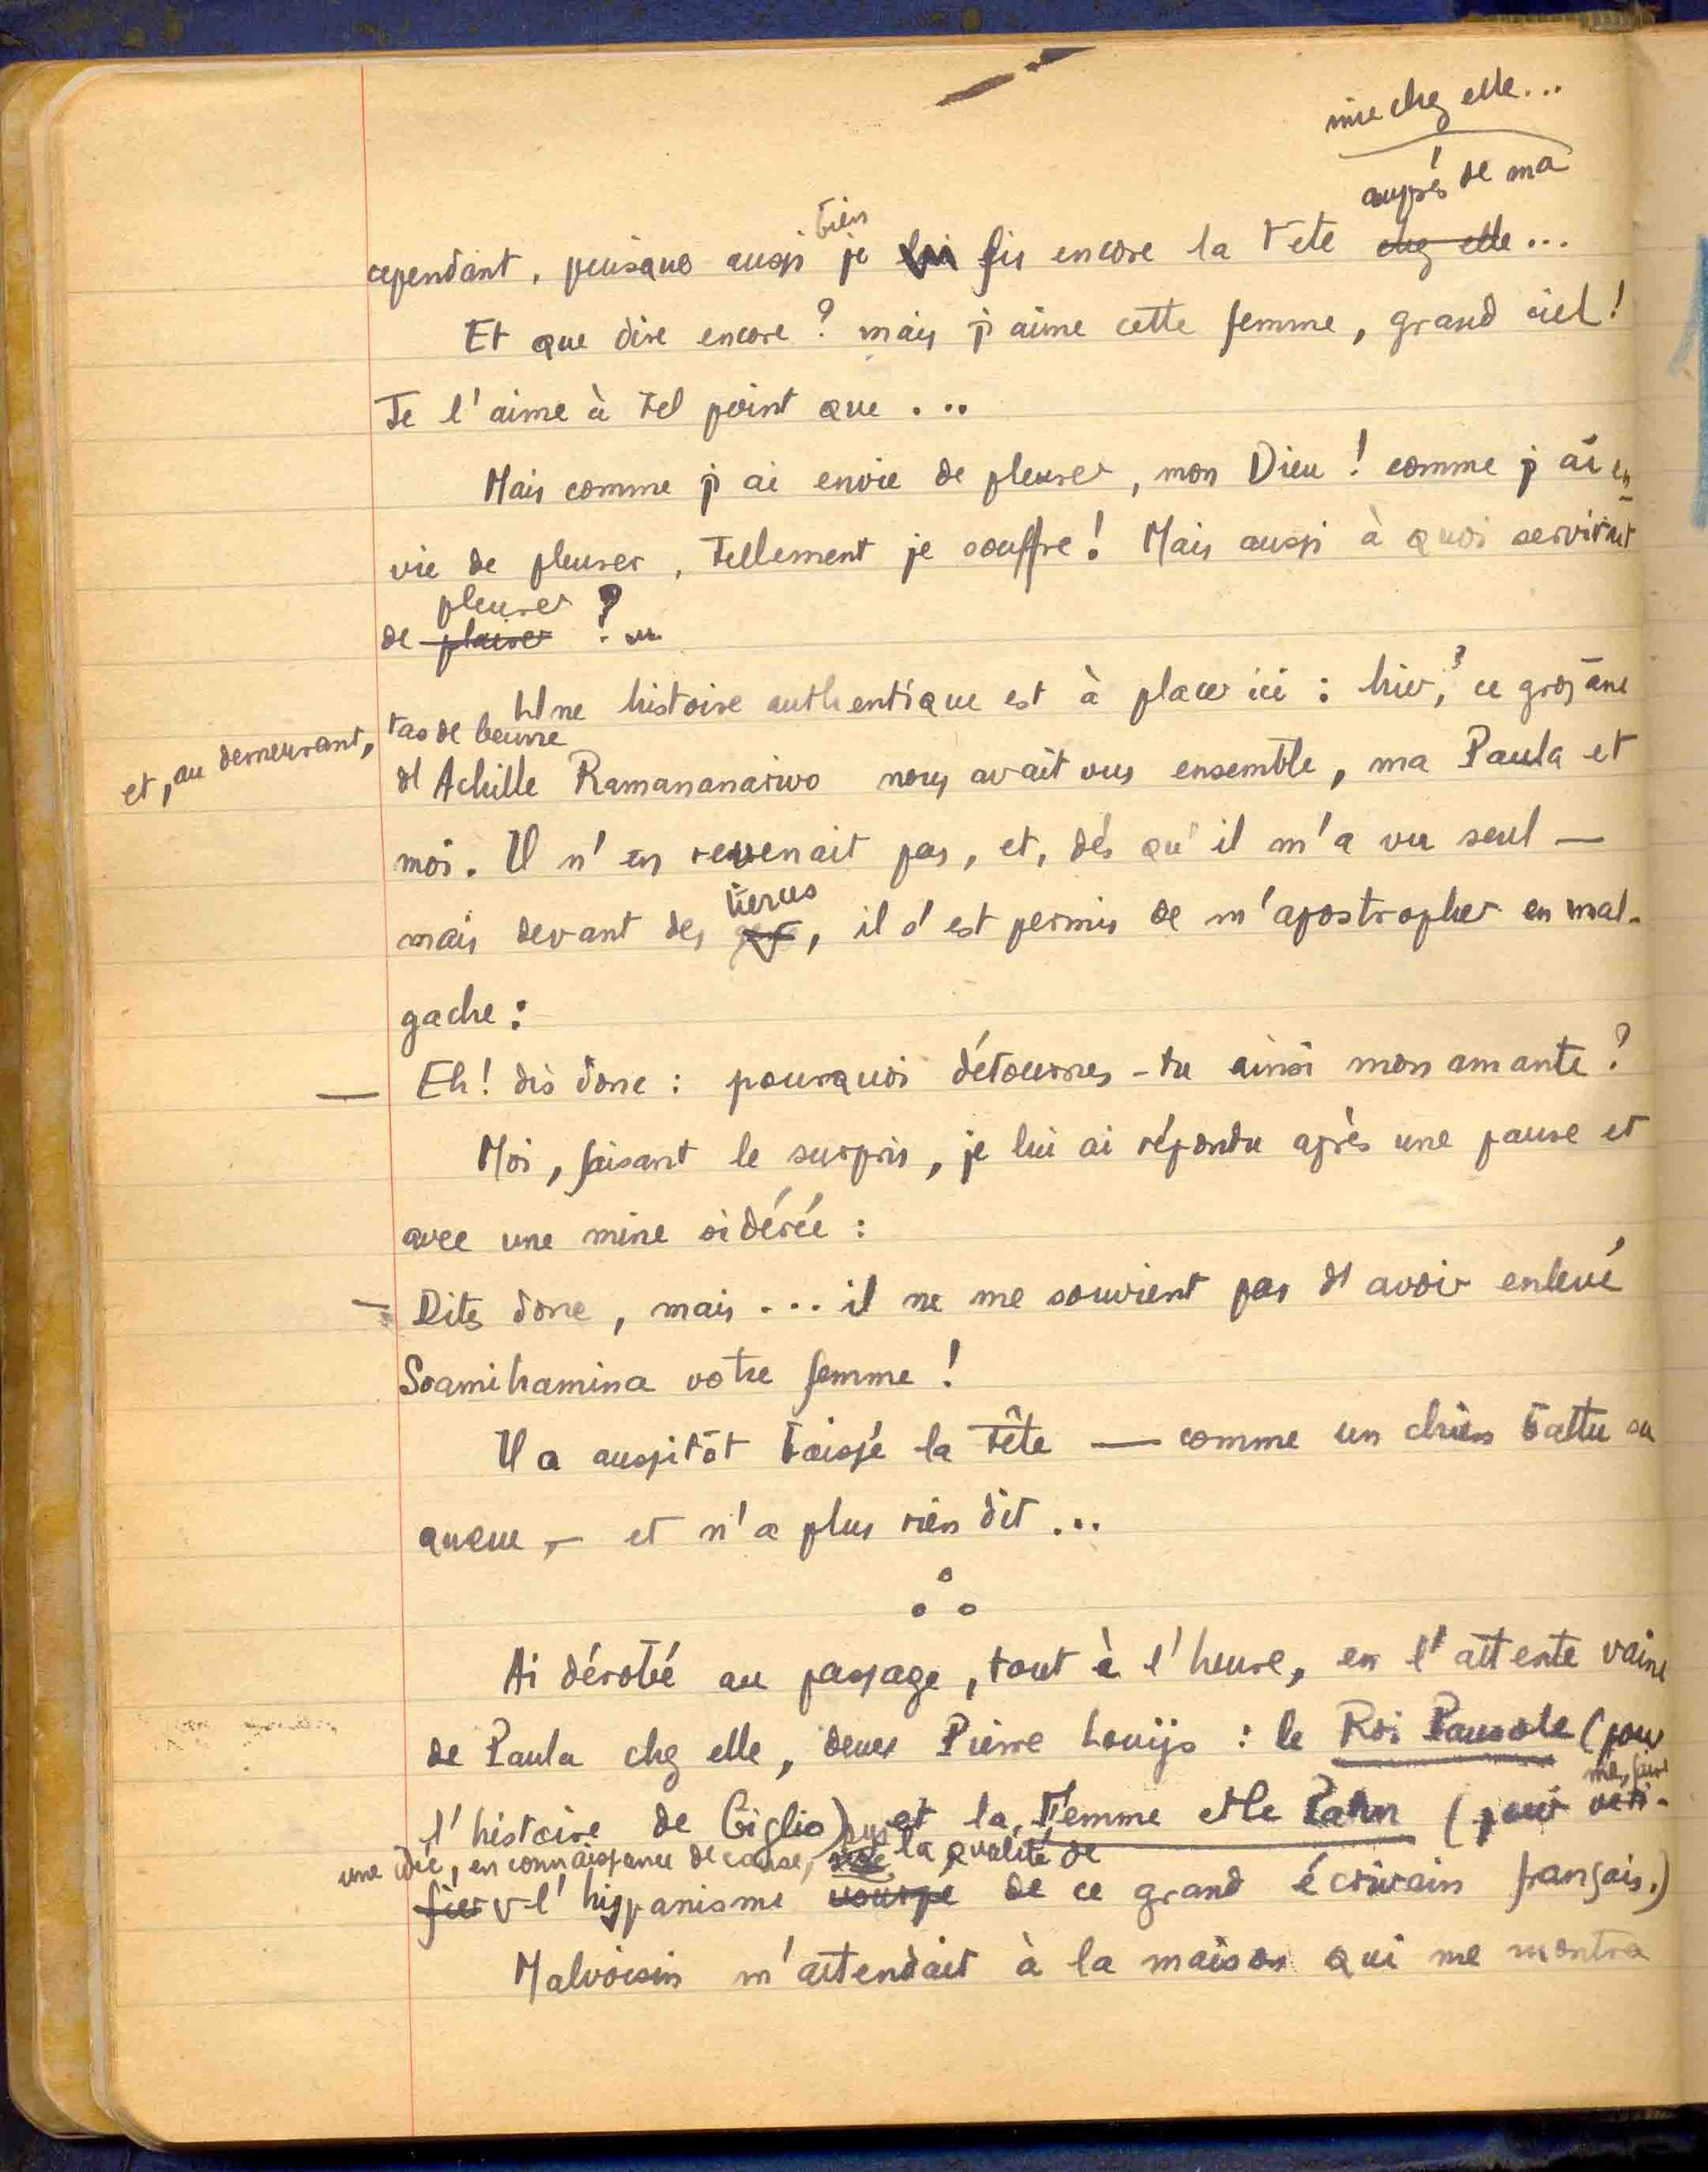 mie chez elle...
auprès de ma
bien
cependant, puisque aussi je lui fis encore la bête chez elle...
Et que dire encore ? mais j'aime cette femme, grand ciel !
Je l'aime à tel point que ...
Mais comme j'ai envie de pleurer, mon Dieu ! comme j'ai en-
vie de pleurer, tellement je souffre ! Mais aussi à quoi servirait
pleurer ?
de plaire ? ...
Une histoire authentique est à placer ici : hier, ce gros âne
et, au demeurant, tas de beurre
d'Achille Ramananarivo nous avait vus ensemble, ma Paula et
moi. Il n'en revenait pas, et, dès qu'il m'a vu seul —
tierces
mais devant des, il s'est permis de m'apostropher en mal-
gache :
— Eh ! dis donc : pourquoi détournes-tu ainsi mon amante ?
Moi, faisant le surpris, je lui ai répondu après une pause et
avec une mine sidérée :
— Dites donc, mais ... il ne me souvient pas d'avoir enlevé
Soamihamina votre femme !
Il a aussitôt baissé la tête — comme un chien battu sa
queue, — et n'a plus rien dit ...
Ai dérobé au passage, tout à l'heure, en l'attente vaine
de Paula chez elle, deux Pierre Louÿs : le Roi Pausole (pour
me, faire
l'histoire de Giglio) et la Femme et le Pantin (pour véri-
une idée, en connaissance de cause, sur la qualité de
fier l'hispanisme usurpé de ce grand écrivain français.)
Malvoisin m'attendait à la maison qui me montra